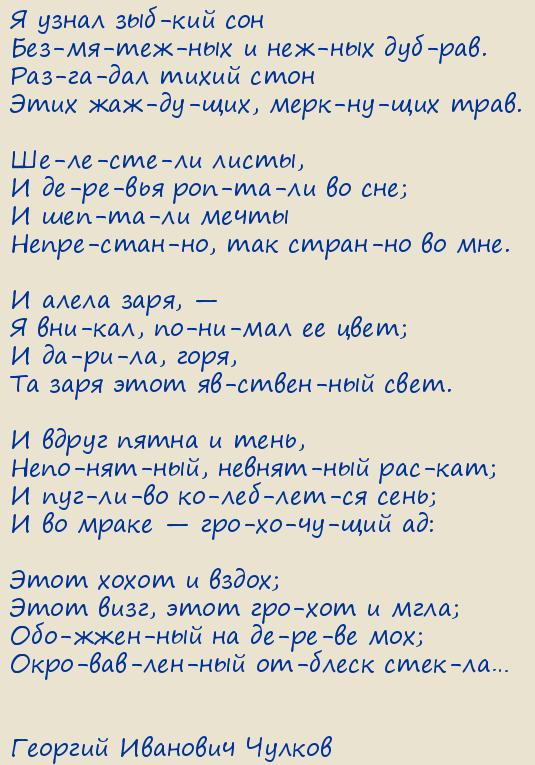 Я узнал зыб-кий сон
Без-мя-теж-ных и неж-ных дуб-рав.
Раз-га-дал тихий стон
Этих жаж-ду-щих, мерк-ну-щих трав.

Ше-ле-сте-ли листы,
И де-ре-вья роп-та-ли во сне;
И шеп-та-ли мечты
Непре-стан-но, так стран-но во мне.

И алела заря, —
Я вни-кал, по-ни-мал ее цвет;
И да-ри-ла, горя,
Та заря этот яв-ствен-ный свет.

И вдруг пятна и тень,
Непо-нят-ный, невнят-ный рас-кат;
И пуг-ли-во ко-леб-лет-ся сень;
И во мраке — гро-хо-чу-щий ад:

Этот хохот и вздох;
Этот визг, этот гро-хот и мгла;
Обо-жжен-ный на де-ре-ве мох;
Окро-вав-лен-ный от-блеск стек-ла...

Георгий Иванович Чулков